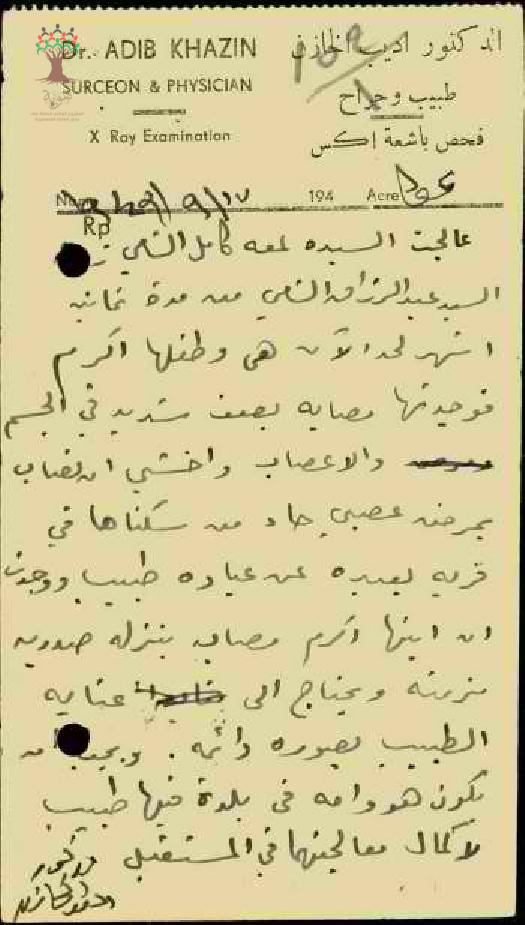 Dr. ADIB KHAZIN
SURGEON & PHYSICIAN
X Ray Examination
الدكتور اديب الخازن
طبيب وجراح
فحص باشعة إكس
194 Acre عكا
Rp
عالجت السيده كامل
السيد عبد الرزاق من مدة ثمانيه
اشهر لحد الآن هي وطفلها اكرم
فوجدتها مصابه بضعف شديد في الجسم
والاعصاب واخشى ان تصاب
بمرض عصبي حاد من سكناها في
قريه بعيده عن عياده طبيب ووجدت
ان ابنها اكرم مصاب بنزله صدريه
مزمنه ويحتاج الى عنايه
الطبيب بصوره دائمه. ويجب ان
يكون هو وامه في بلدة فيها طبيب
لاكمال معالجتهما في المستقبل